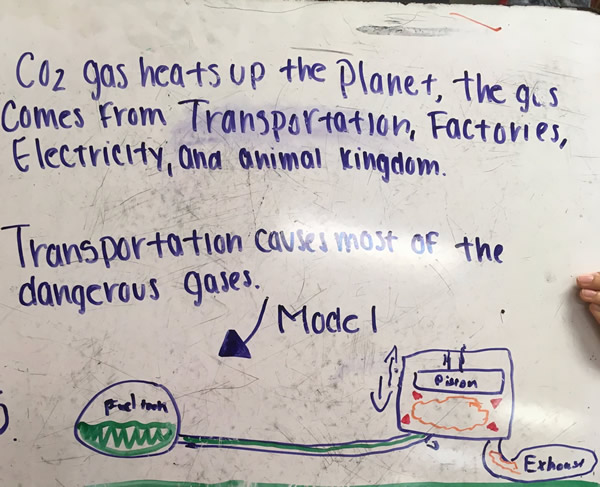 CO2 gas heats up the Planet, the gas
Comes From Transportation, Factories,
Electricity, and animal kingdom.
Transportation causes most of the
dangerous gases.
Model
Fuel tank
Piston
Exhaust